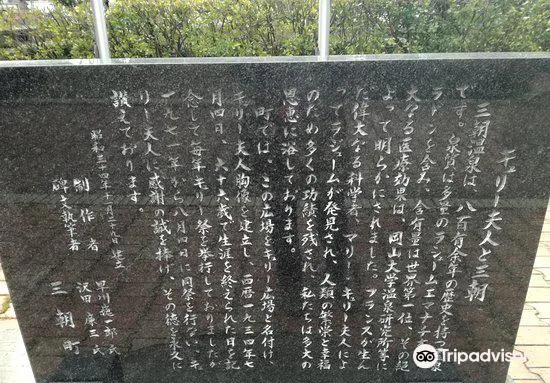 キュリー夫人と三朝
三朝温泉は、八百有余年の歴史を持つ温泉
です。泉質は多量のラジューム エマナチオン
ラドンを含み、含有量は世界第一位、その絶
大なる医療効果は、岡山大学温泉研究所等に
よって明らかにされました。フランスが生ん
だ偉大なる科学者、マリー・キュリー夫人によ
ってラジュームが発見され、人類の繁栄と幸福
のため多くの功績を残され、私たちは多大の
恩恵に浴しております。
町では、この広場をキュリー広場と名付け、
キュリー夫人胸像を建立し、西暦一九三四年七
月四日、六十六歳で生涯を終えられた日を記
念して毎年キュリー祭を挙行しておりましたが
一九七一年から八月四日に同祭を行い、キュ
リー夫人に感謝の誠を捧げ、その徳を永久に
讃えております。
昭和三十四年十一月三十日 建立
制作者 早川 氏
碑文執筆者 沢田 廉三氏
三朝町
Tripadvisor